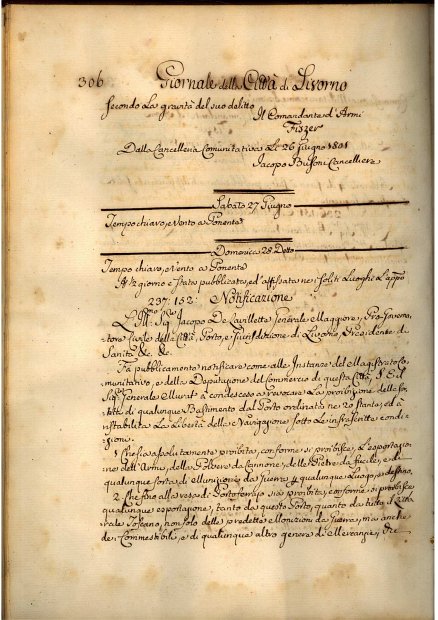 306 Giornale della Città di Livorno
secondo La gravità del suo delitto
Il Comandante d'Armi
Fiszer
Dalla Cancelleria Comunitativa Li 26 Giugno 1801
Jacopo Bussoni Cancelliere
Sabato 27 Giugno
Tempo chiaro, e Vento a Ponente
Domenica 28 Detto
Tempo chiaro, e Vento a Ponente
giorno è stato pubblicata, ed affissata ne' soliti Luoghi L'appo
237: 152: Notificazione
L'Ill. Sig. Jacopo De Lavillette Generale Maggiore, Pro-Governa-
tore Civile della Città, Porto, e Giurisdizione di Livorno, Presidente di
Sanità &c. &c.
Fa pubblicamente notificare come alle Instanze del Magistrato Co-
munitativo, e della Deputazione del Commercio di questa Città, S. E. il
Sig. Generale Murat à condesceso a revocare La proibizione della sor-
tita di qualunque Bastimento dal Porto ordinata ne' 20 stante, ed à
ristabilita La Libertà della Navigazione sotto Le infrascritte condi-
zioni.
1. Che sia assolutamente proibita, conforme si proibisce, L'esportazio-
ne dell'Armi, della Polvere da Cannone, delle Pietre da fucile, e di
qualunque sorta di Munizioni da Guerra p qualunque Luogo, e desso.
2. Che fino alla resa di Portoferrajo sia proibita, conforme si proibisce
qualunque esportazione, tanto da questo Porto, quanto da tutto il Litto-
rale Toscano, non solo delle predette Munizioni da Guerra, ma anche
de' Commestibili, e di qualunque altro genere di Mercanzie, Di-